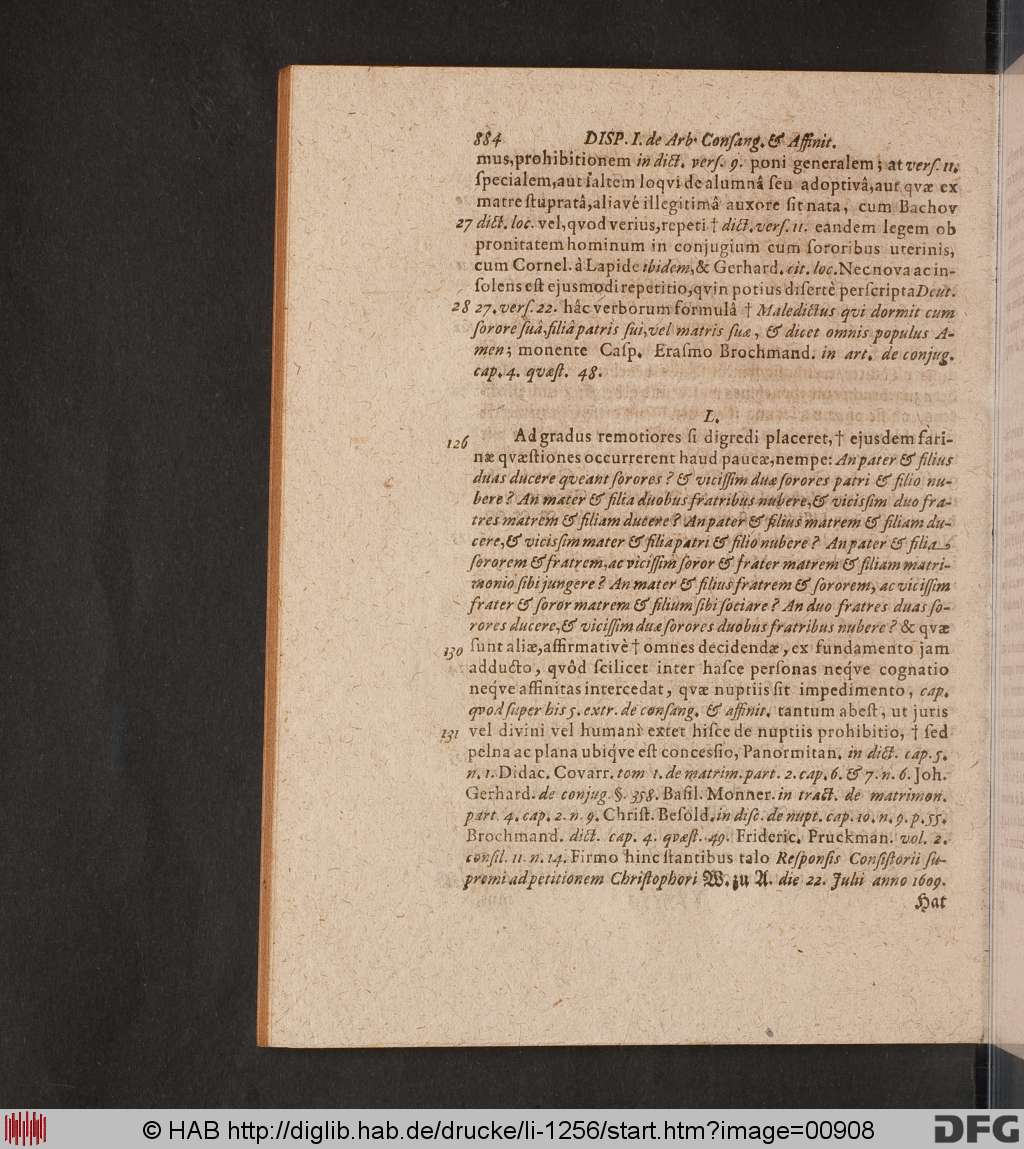 884 DISP. I. de Arb. Conſang. & Affinit.
mus,prohibitionem in dict. verſ. 9. poni generalem; at verſ. 11.
ſpecialem,aut ſaltem loqvi de alumnâ ſeu adoptivâ,aut qvæ ex
matre ſtupratâ,aliavè illegitimâ auxore ſit nata, cum Bachov
27 dict. loc. vel,qvod verius,repeti † dict. verſ. 11. eandem legem ob
pronitatem hominum in conjugium cum ſororibus uterinis,
cum Cornel. à Lapide ibidem,& Gerhard. cit. loc. Nec nova ac in-
ſolens eſt ejusmodi repetitio,qvin potius diſertè perſcripta Deut.
28 27. verſ. 22. hâc verborum formulâ † Maledictus qvi dormit cum
ſorore ſuâ,filiâ patris ſui,vel matris ſuæ, & dicet omnis populus A-
men; monente Caſp. Eraſmo Brochmand. in art. de conjug.
cap. 4. qvæſt. 48.
L.
126 Ad gradus remotiores ſi digredi placeret,† ejusdem fari-
næ qvæſtiones occurrerent haud paucæ,nempe: An pater & filius
duas ducere qveant ſorores? & viciſſim duæ ſorores patri & filio nu-
bere? An mater & filia duobus fratribus nubere,& viciſſim duo fra-
tres matrem & filiam ducere? An pater & filius matrem & filiam du-
cere,& viciſſim mater & filia patri & filio nubere? An pater & filia
ſororem & fratrem,ac viciſſim ſoror & frater matrem & filiam matri-
monio ſibi jungere? An mater & filius fratrem & ſororem, ac viciſſim
frater & ſoror matrem & filium ſibi ſociare? An duo fratres duas ſo-
rores ducere,& viciſſim duæ ſorores duobus fratribus nubere? & qvæ
130 ſunt aliæ,affirmativè † omnes decidendæ, ex fundamento jam
adducto, qvôd ſcilicet inter haſce perſonas neqve cognatio
neqve affinitas intercedat, qvæ nuptiis ſit impedimento, cap.
qvod ſuper his 5. extr. de conſang. & affinit. tantum abeſt, ut juris
131 vel divini vel humani extet hiſce de nuptiis prohibitio, † ſed
pelna ac plana ubiqve eſt conceſſio, Panormitan. in dict. cap. 5.
n. 1. Didac. Covarr. tom 1. de matrim. part. 2. cap. 6. & 7. n. 6. Joh.
Gerhard. de conjug. §. 358. Baſil. Monner. in tract. de matrimon.
part. 4. cap. 2. n. 9. Chriſt. Beſold. in diſc. de nupt. cap. 10. n. 9. p. 55.
Brochmand. dict. cap. 4. qvæſt. 49. Frideric. Pruckman. vol. 2.
conſil. 11. n. 14. Firmo hinc ſtantibus talo Reſponſis Conſiſtorii ſu-
premi ad petitionem Chriſtophori W. zu A. die 22. Julii anno 1609.
Hat
© HAB http://diglib.hab.de/drucke/li-1256/start.htm?image=00908
DFG